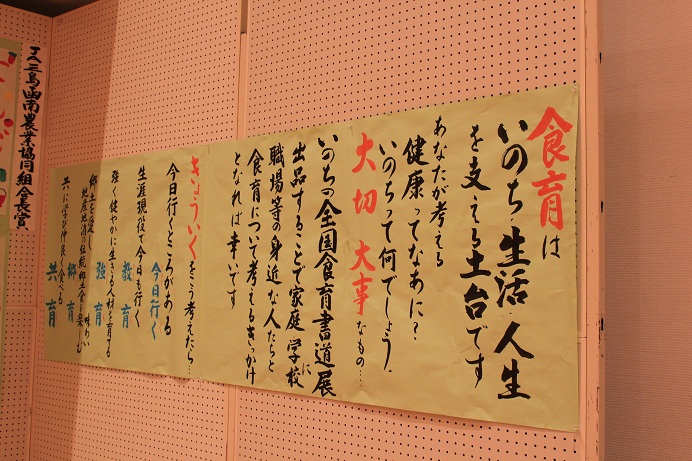 食育は
いのち 生活 人生
を支える土台です
あなたが考える
健康ってなあに?
いのちって何でしょう.
大切 大事なもの…
いのちの全国食育書道展に
出品することで家庭 学校
職場等の身近な人たちと
食育について考えるきっかけ
となれば幸いです
きょういくをこう考えたら…
今日行くところがある
今日行く
生涯現役で今日も行く
教育
強く健やかに生きる人材を育てる
強育
郷土を愛し
味わう
郷育
共に学び仲良く食べる
共育
JA三島函南農業協同組合長賞